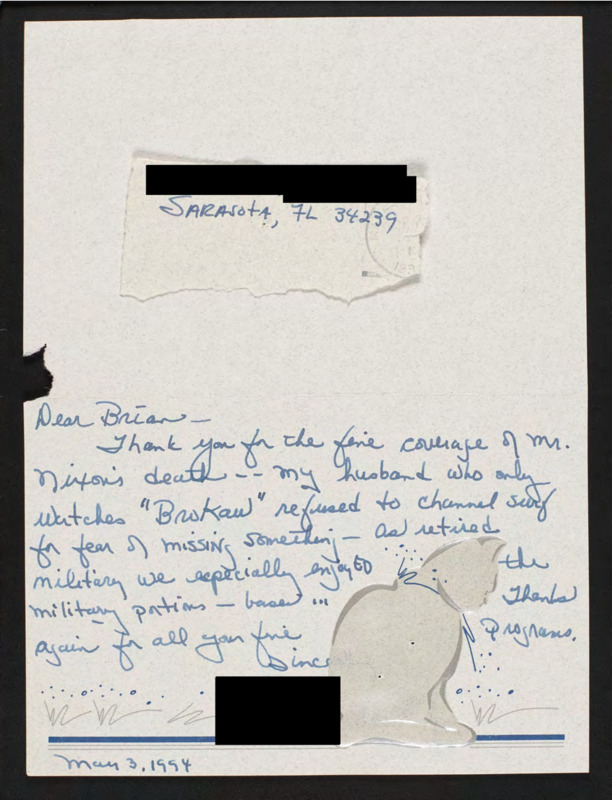 SARASOTA, FL 34239
Dear Brian—
Thank you for the fine coverage of Mr.
Nixon's death -- my husband who only
watches "Brokaw" refused to channel surf
for fear of missing something — as retired
military we especially enjoyed the
military portions — Thanks
again for all your fine Programs.
Since
May 3, 1994